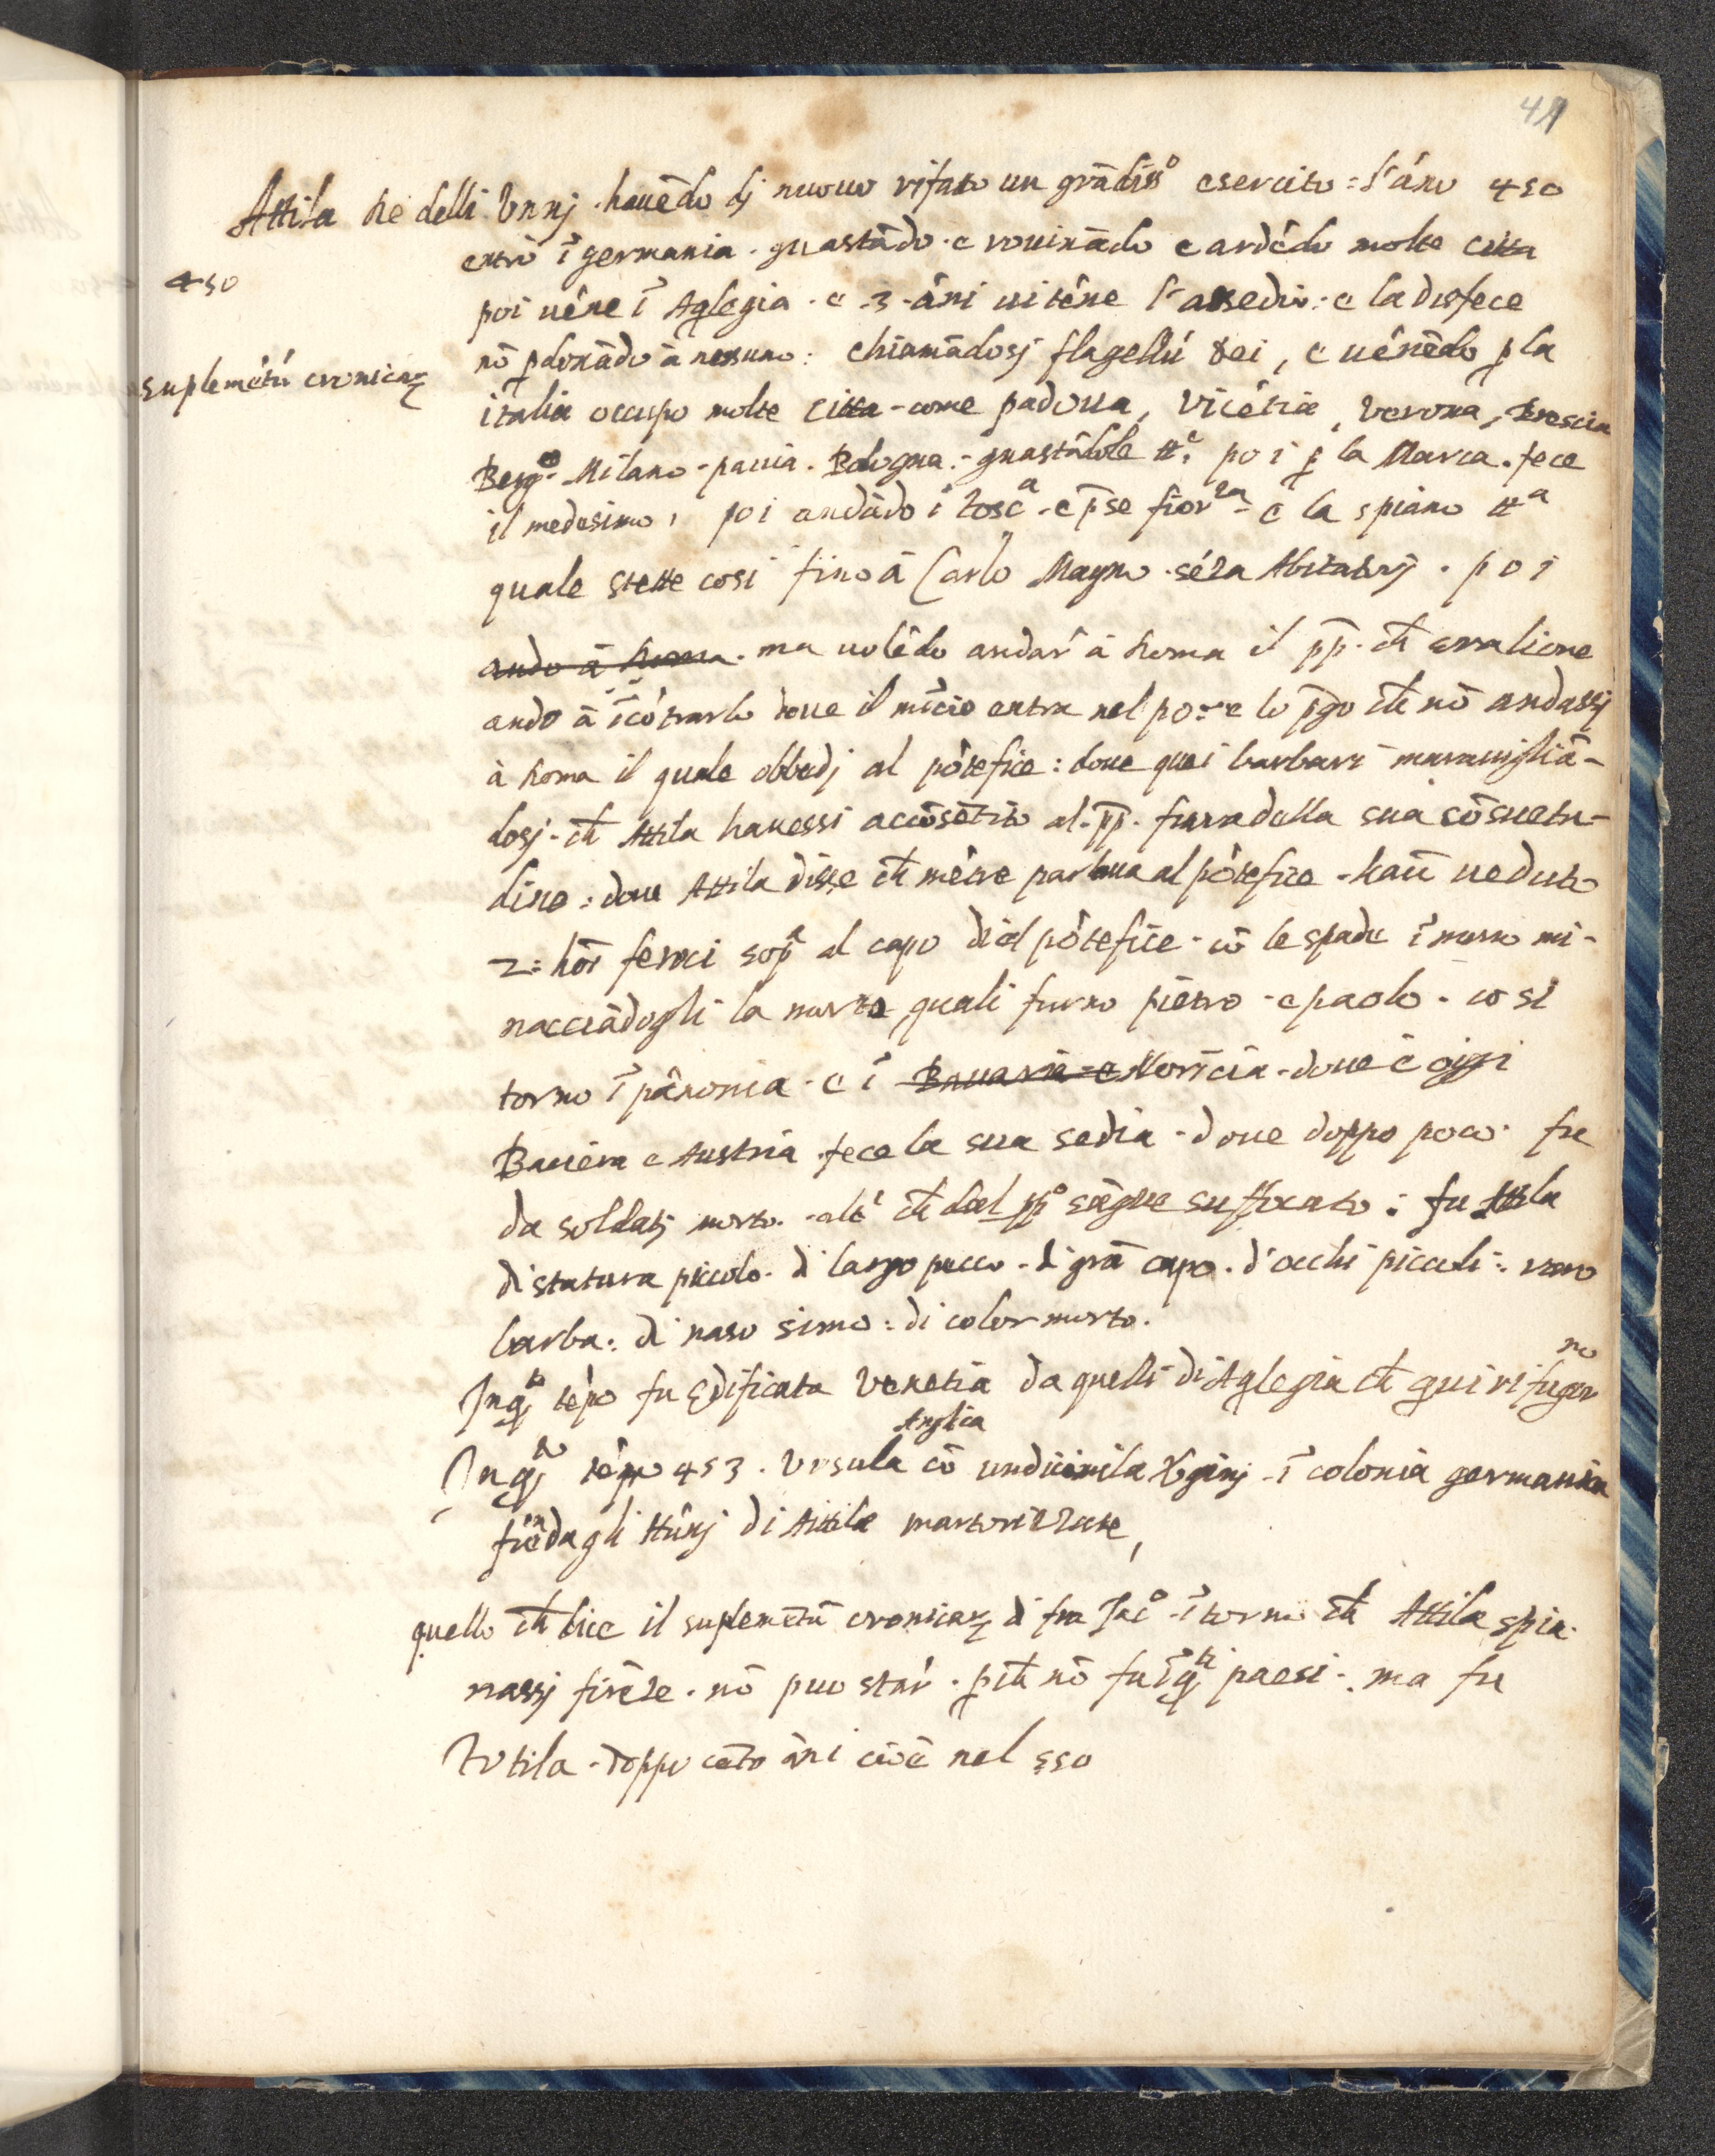 41
Attila Re delli Vnnj · hauēdo dj nuouo rifato un grādiss° esercito = l'āno 450
450
entrò ī germania · guastādo · e rouinādo e ardēdo molte citta
poi uēne ī Aqlegia · e · 3 · āni ui tēne l'assedio : e la disfece
suplemētū cronicaꝝ
nō ꝑdonādo à nessuno : chiamādosj flagellū dei , e uēnēdo ꝑ la
italia occupo molte citta - come padoua , Vicētia , Verona , brescia
Berg° - Milano - pauia . Bologna : - guastādole ttᵉ , poi ꝑ la Marca . fece
il medesimo , poi andādo ī toscᵃ - e p̄se fiorᶻᵃ - e la spiano ttᵃ
quale stette cosi fino à Carlo Magno · sēza Abitatorj · poi
ando à Roma · ma uolēdo andar' à Roma il p̄p · ch̄ era lione
ando à īcōtrarlo doue il mīcio entra nel po : e lo p̄go ch̄ nō andassj
à Roma il quale obbedj al pōtefice : doue quei barbari marauigliā-
dosj - ch̄ Attila hauessi accōsētito al · p̄p · fuora della sua cōsuetu-
dine : doue Attila disse ch̄ mētre parlaua al pōtefice - hauē ueduto
2 = hōi feroci sopᵃ al capo del pōtefice - cō le spade ī mano mi-
nacciādogli la morte quali furno pietro - e paolo - cosi
torno ī pānonia - e ī Bauaria e Noricia - doue è oggi
Bauiera e Austria fece la sua sedia - doue doppo poco · fu
da soldatj morto - altᵉ ch̄ dal pp° sāgue suffocato : fu Attila
di statura piccolo · di largo petto - di grā capo · d'occhi piccoli : raro
barba : di naso simo : di color morto .
Jn qᵗᵒ tēpo fu Edificata Venetia da quelli di Aqlegia ch̄ qui rifuger
no
Anglica
Jn qᵗᵒ tēpo 453 · Vrsula cō undicimila Vginj - ī colonia germania
furn dagli Hūnj di Attila martorizzate ,
quello ch̄ dice il suplemētū cronicaꝝ di fra Jac° - ītorno ch̄ Attila spia-
nassj firēze · nō puo star' · ꝑch̄ nō fu ī qᵗⁱ paesi - ma fu
Totila - doppo cēto āni cioè nel 550